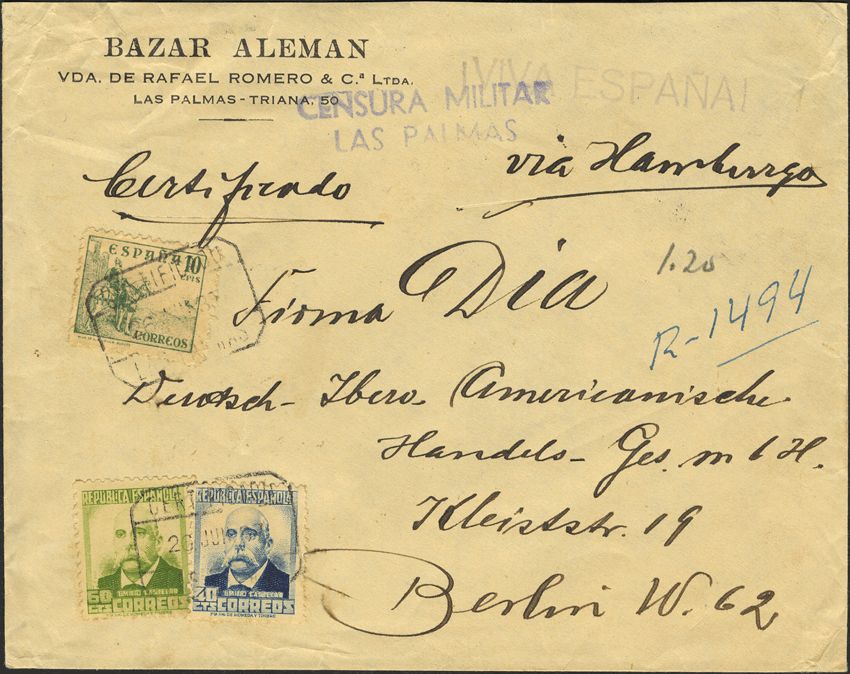 BAZAR ALEMAN
VDA. DE RAFAEL ROMERO & C.ª LTDA.
LAS PALMAS - TRIANA, 50
¡VIVA ESPAÑA!
CENSURA MILITAR
LAS PALMAS
Certificado
via Hamburgo
ESPAÑA 10
CTS
CORREOS
1.20
R-1494
Firma Dia
Deutsch-Ibero-Americanische
Handels-Ges. m b H.
Kleiststr. 19
Berlin W. 62
REPUBLICA ESPAÑOLA
EMILIO CASTELAR
60 CTS CORREOS
REPUBLICA ESPAÑOLA
EMILIO CASTELAR
40 CTS CORREOS
CERTIFICADO
20 JUN